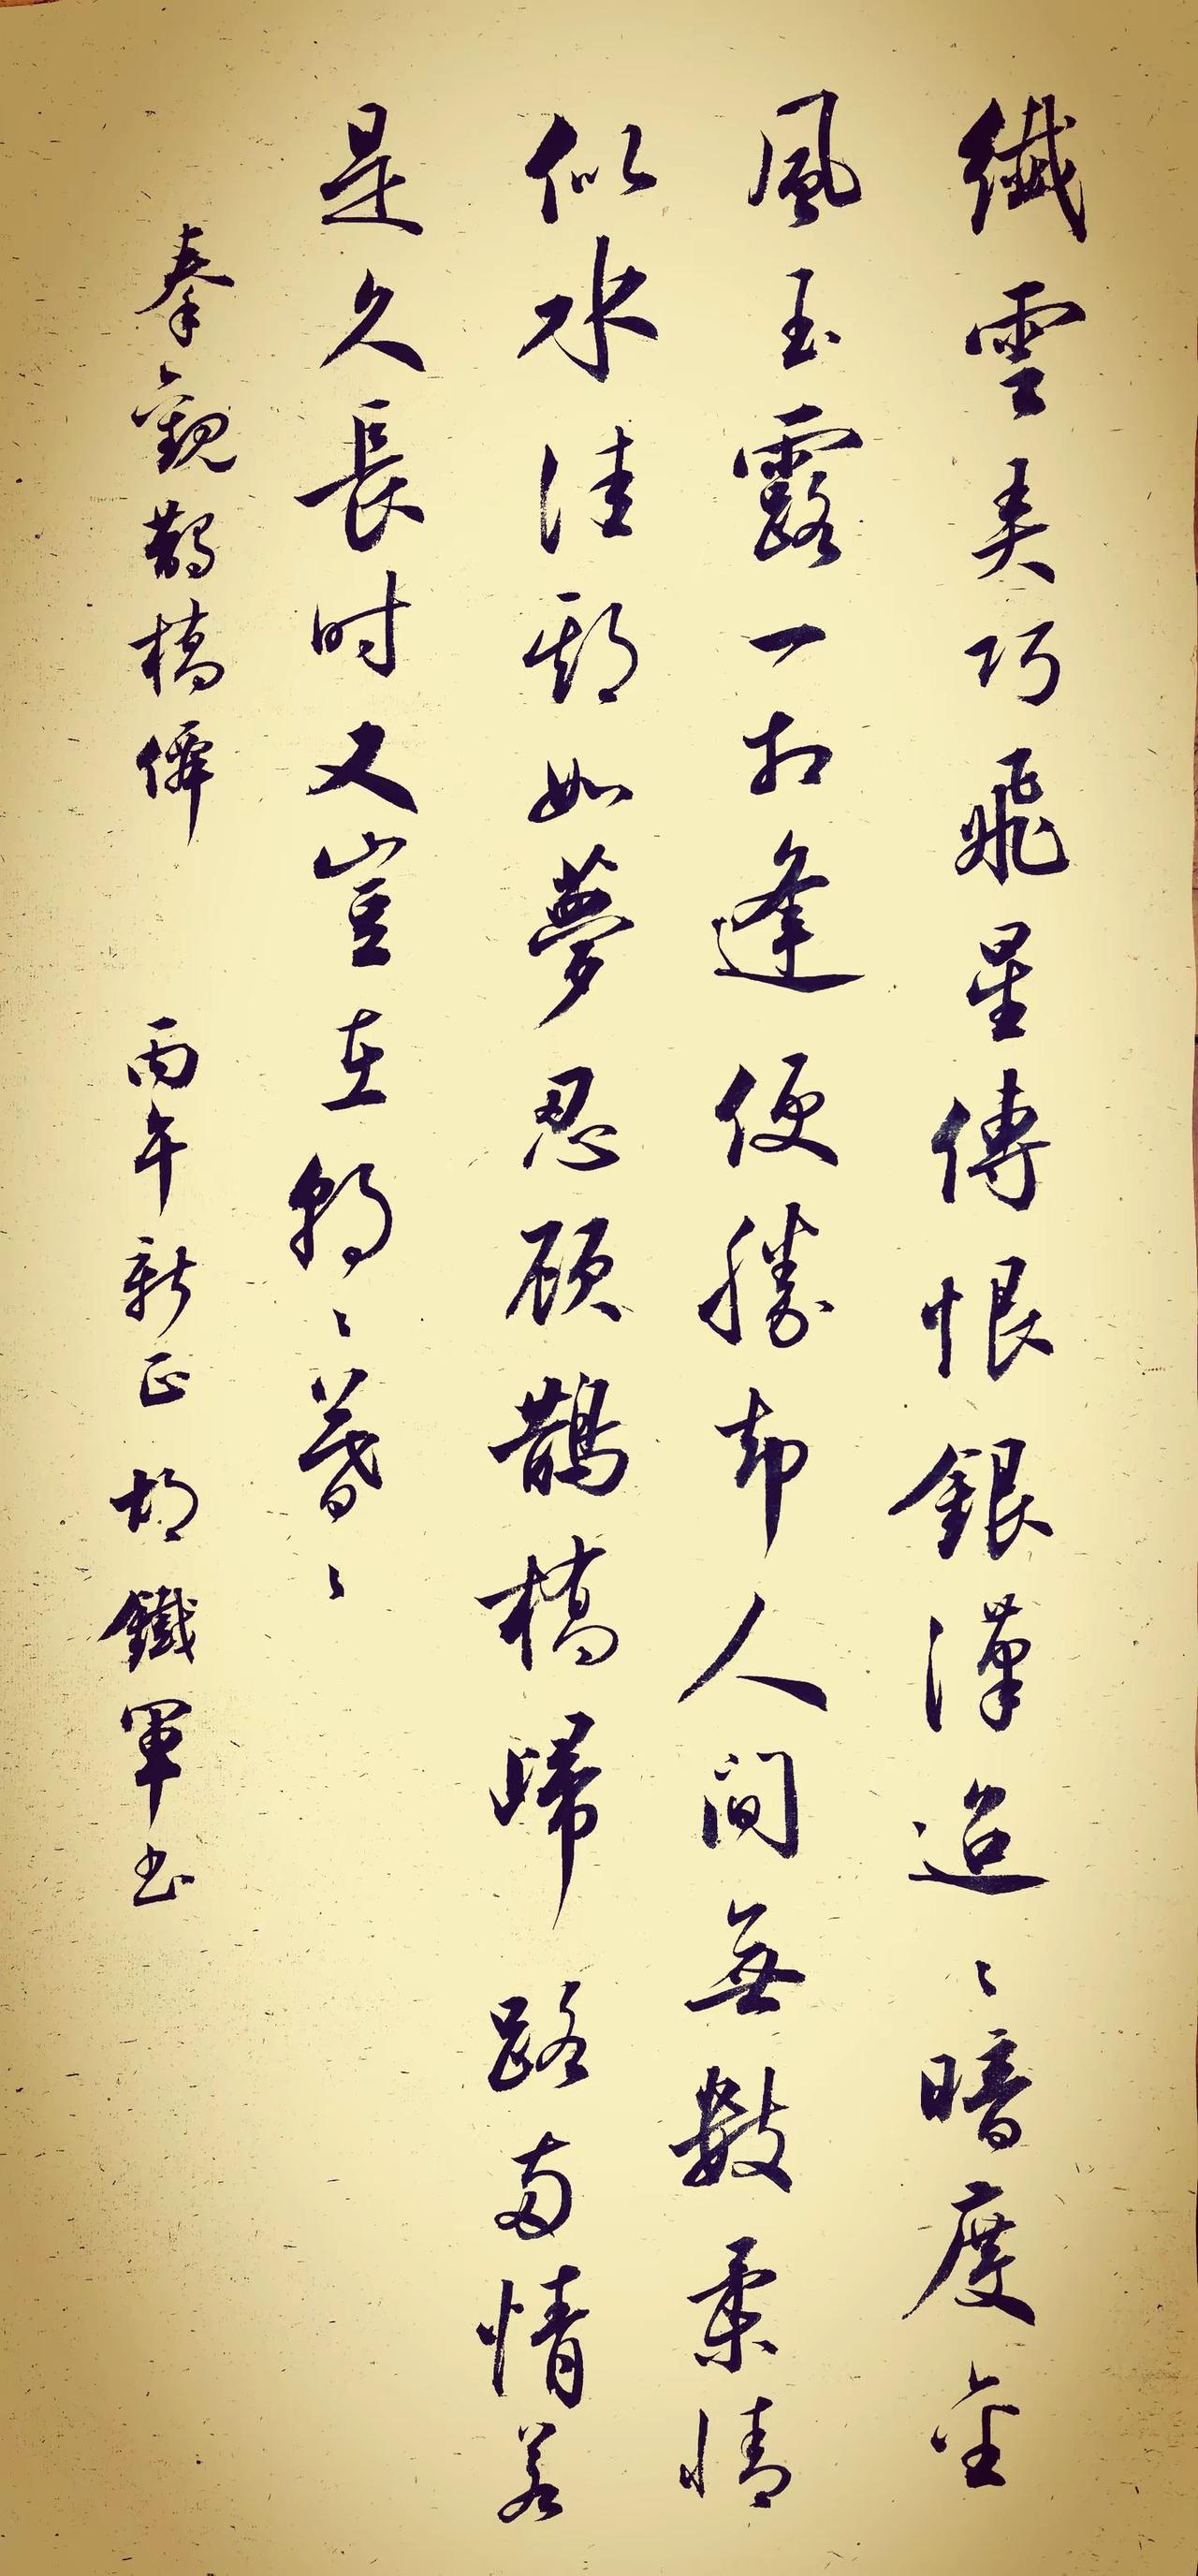 纖雲弄巧飛星傳恨銀漢迢〻暗度金
風玉露一相逢便勝却人間無數柔情
似水佳期如夢忍顧鵲橋歸路兩情若
是久長时又豈在朝〻暮〻
秦觀鵲橋僊 丙午新正胡鐵軍书